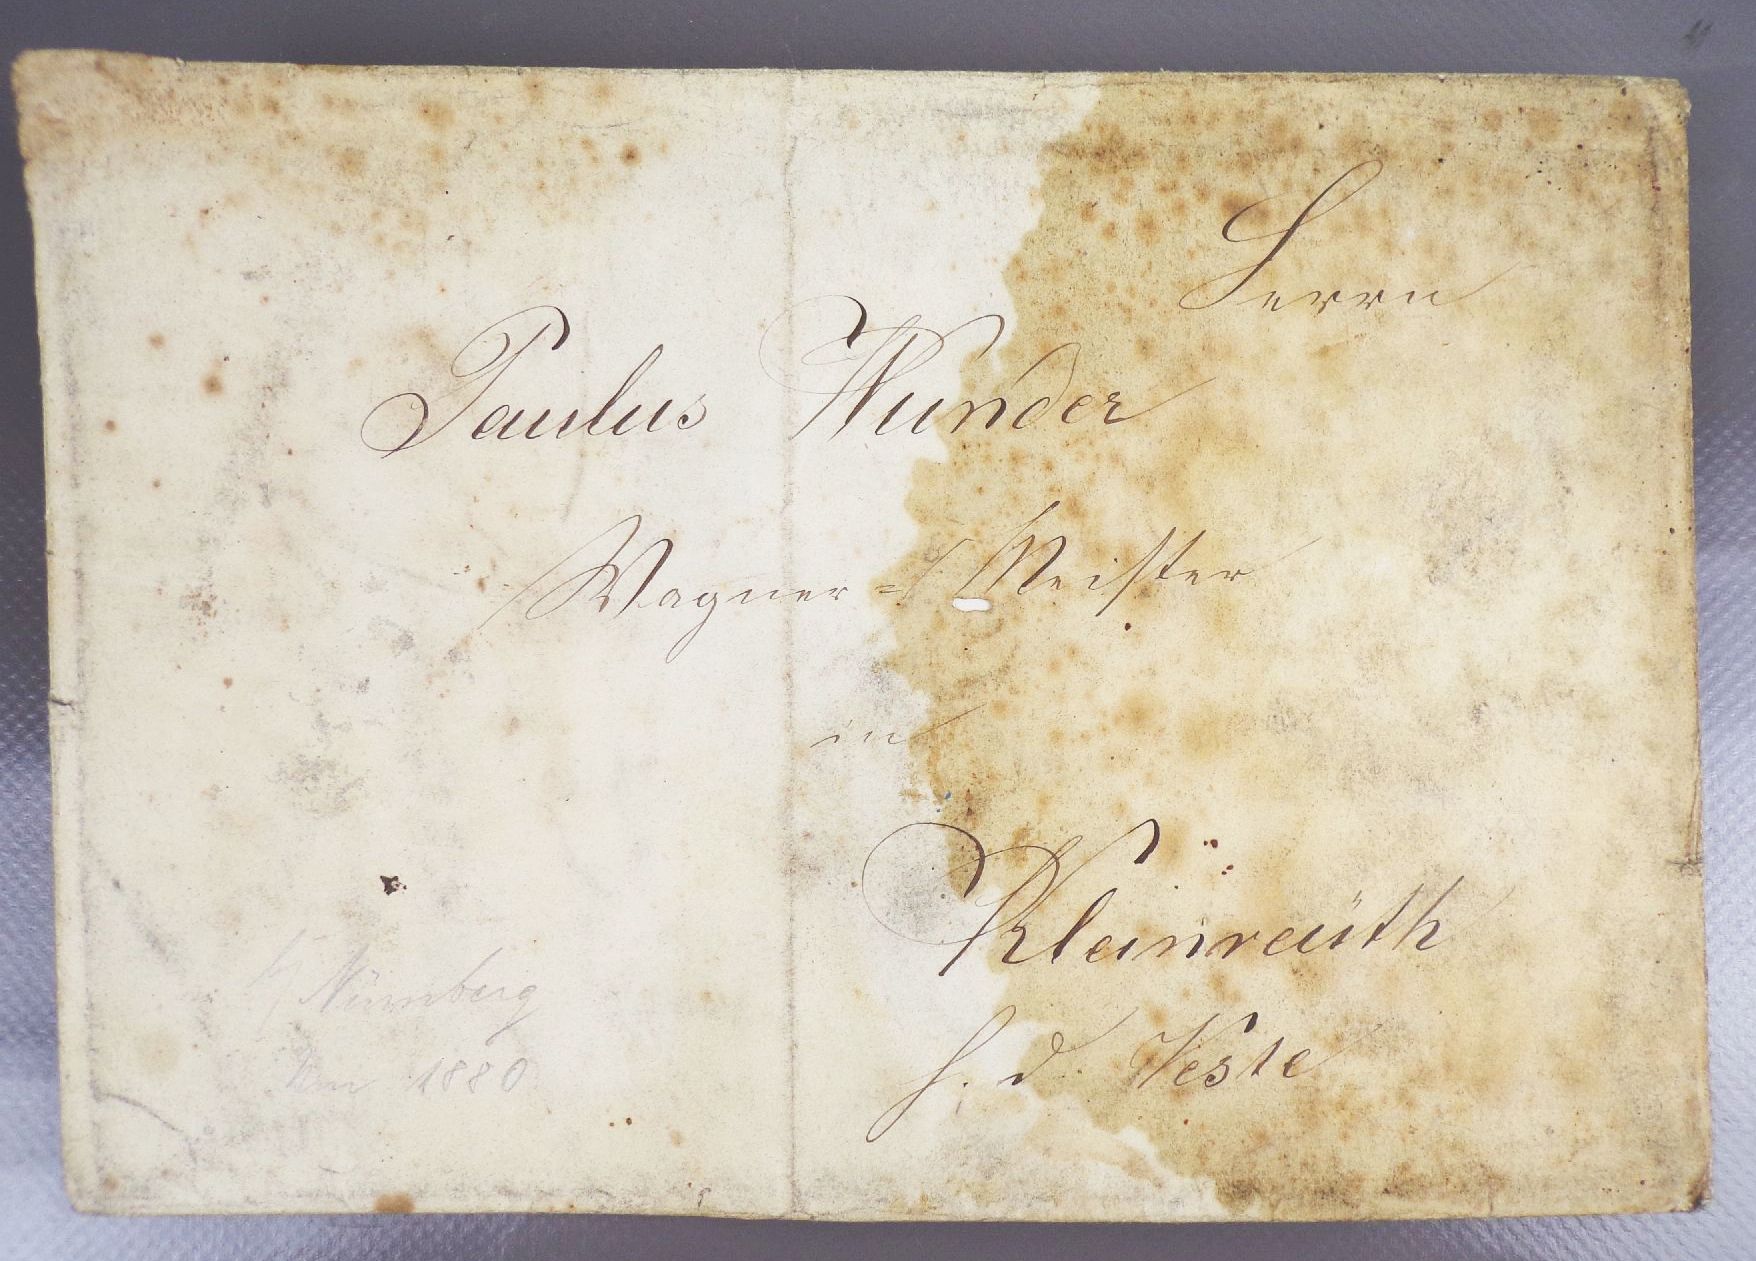 Herrn
Paulus Wunder
Wagner = Meister
in
Kleinreüth
h. d. Veste
Nürnberg
1880